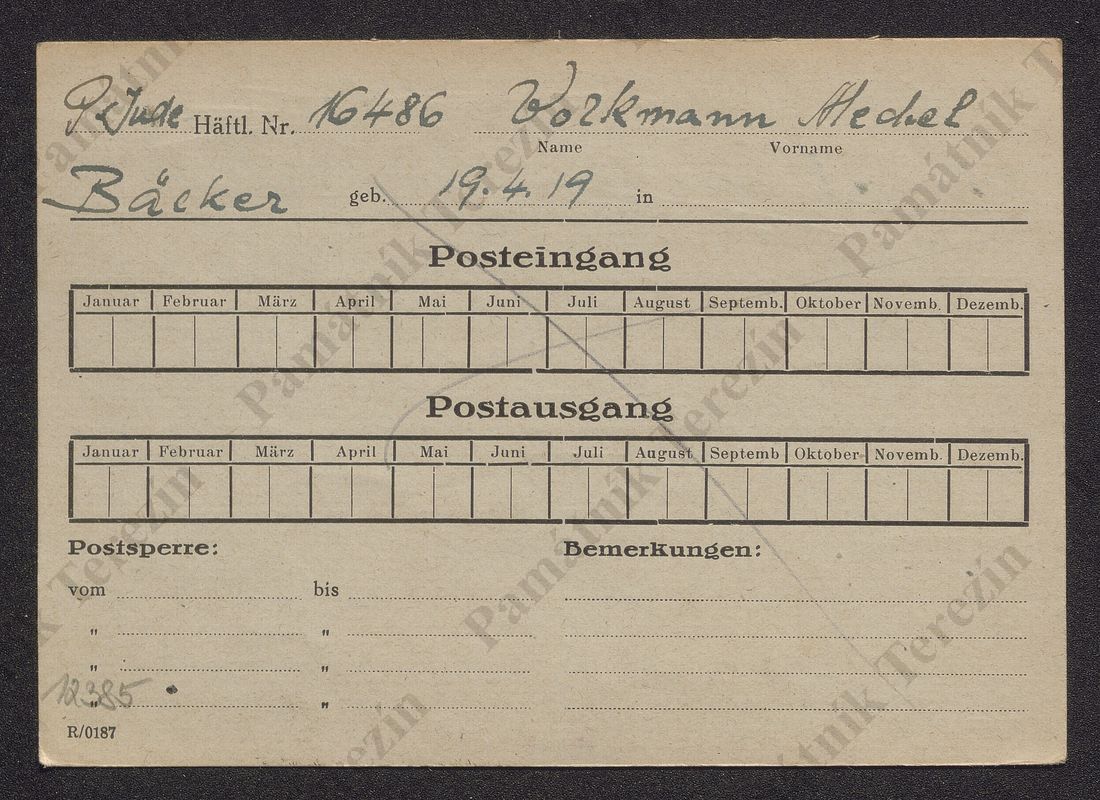 P. Jude Häftl. Nr. 16486 Workmann Mechel
Name Vorname
Bäcker geb. 19.4.19 in
Posteingang
Januar Februar März April Mai Juni Juli August Septemb. Oktober Novemb. Dezemb.
Postausgang
Januar Februar März April Mai Juni Juli August Septemb Oktober Novemb. Dezemb.
Postsperre: Bemerkungen:
vom bis
" "
" "
" "
12385
R/0187
Památník Terezín